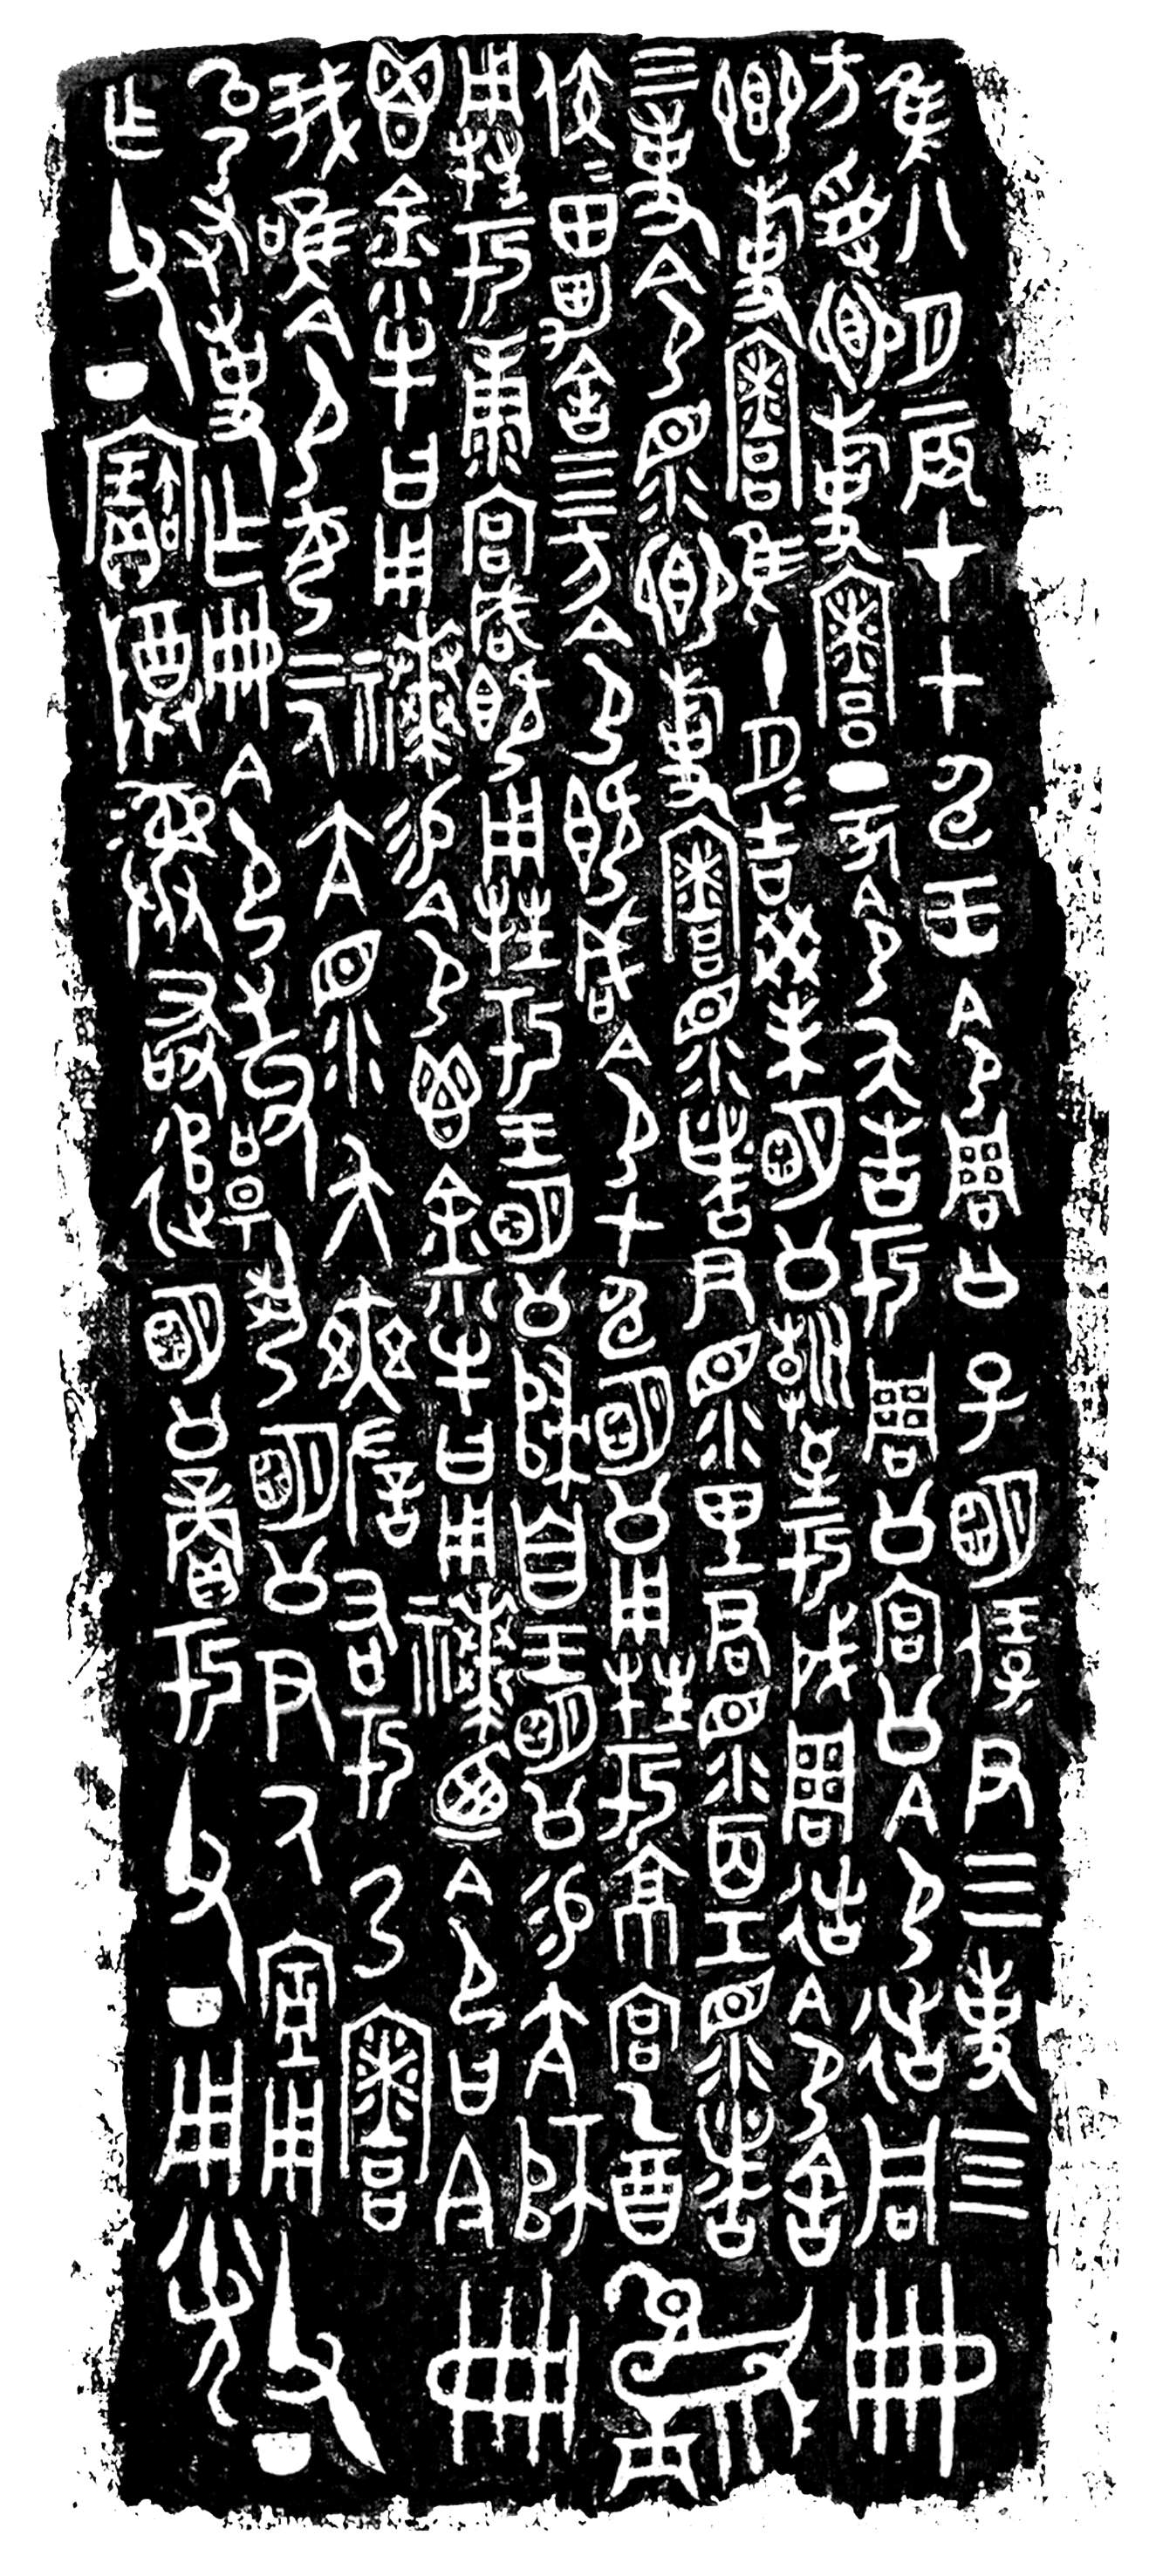 隹八月辰才甲申王令周公子明保尹三事四
方受卿事寮丁亥令夨告于周公宮公令𢓊同
卿事寮隹十月月吉癸未明公朝至于成周𢓊令舍
三事令眔卿事寮眔者尹眔里君眔百工眔者
侯侯田男舍四方令既咸令甲申明公用牲于京宮乙酉
用牲于康宮咸既用牲于王明公歸自王明公易亢師
鬯金小牛曰用𥛱易令鬯金小牛曰用𥛱廼令曰今
我唯令女二人亢眔夨奭左右于乃寮
以乃友事乍冊令敢揚明公尹氒宁用
乍父丁寶尊彝敢追明公賞于父丁用光
父丁
冊冊